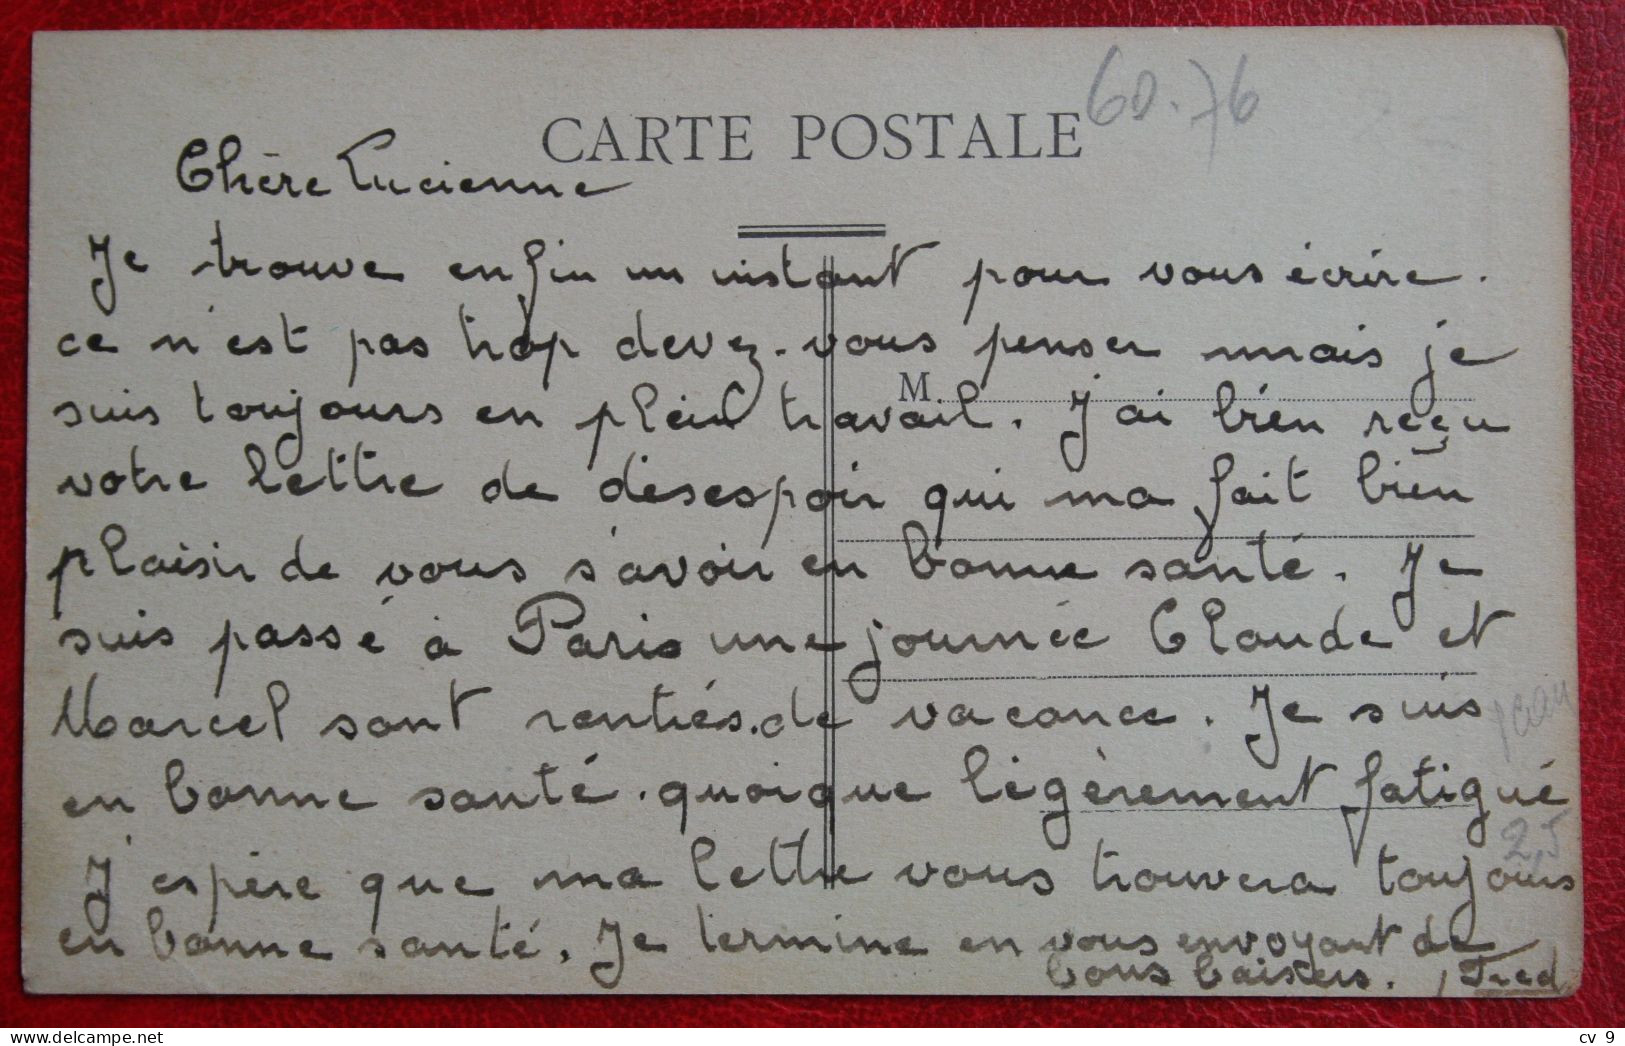 60.76
CARTE POSTALE
Chère Lucienne
Je trouve enfin un instant pour vous écrire.
ce n'est pas trop devez-vous penser mais je
M
suis toujours en plein travail. J'ai bien reçu
votre lettre de désespoir qui ma fait bien
plaisir de vous s'avoir en bonne santé. Je
suis passé à Paris une journée Claude et
Marcel sont rentrés de vacance. Je suis
en bonne santé. quoique légèrement fatigué
2,5
J'espère que ma lettre vous trouvera toujours
en bonne santé. Je termine en vous envoyant de
bons baisers. Fred
cv 9